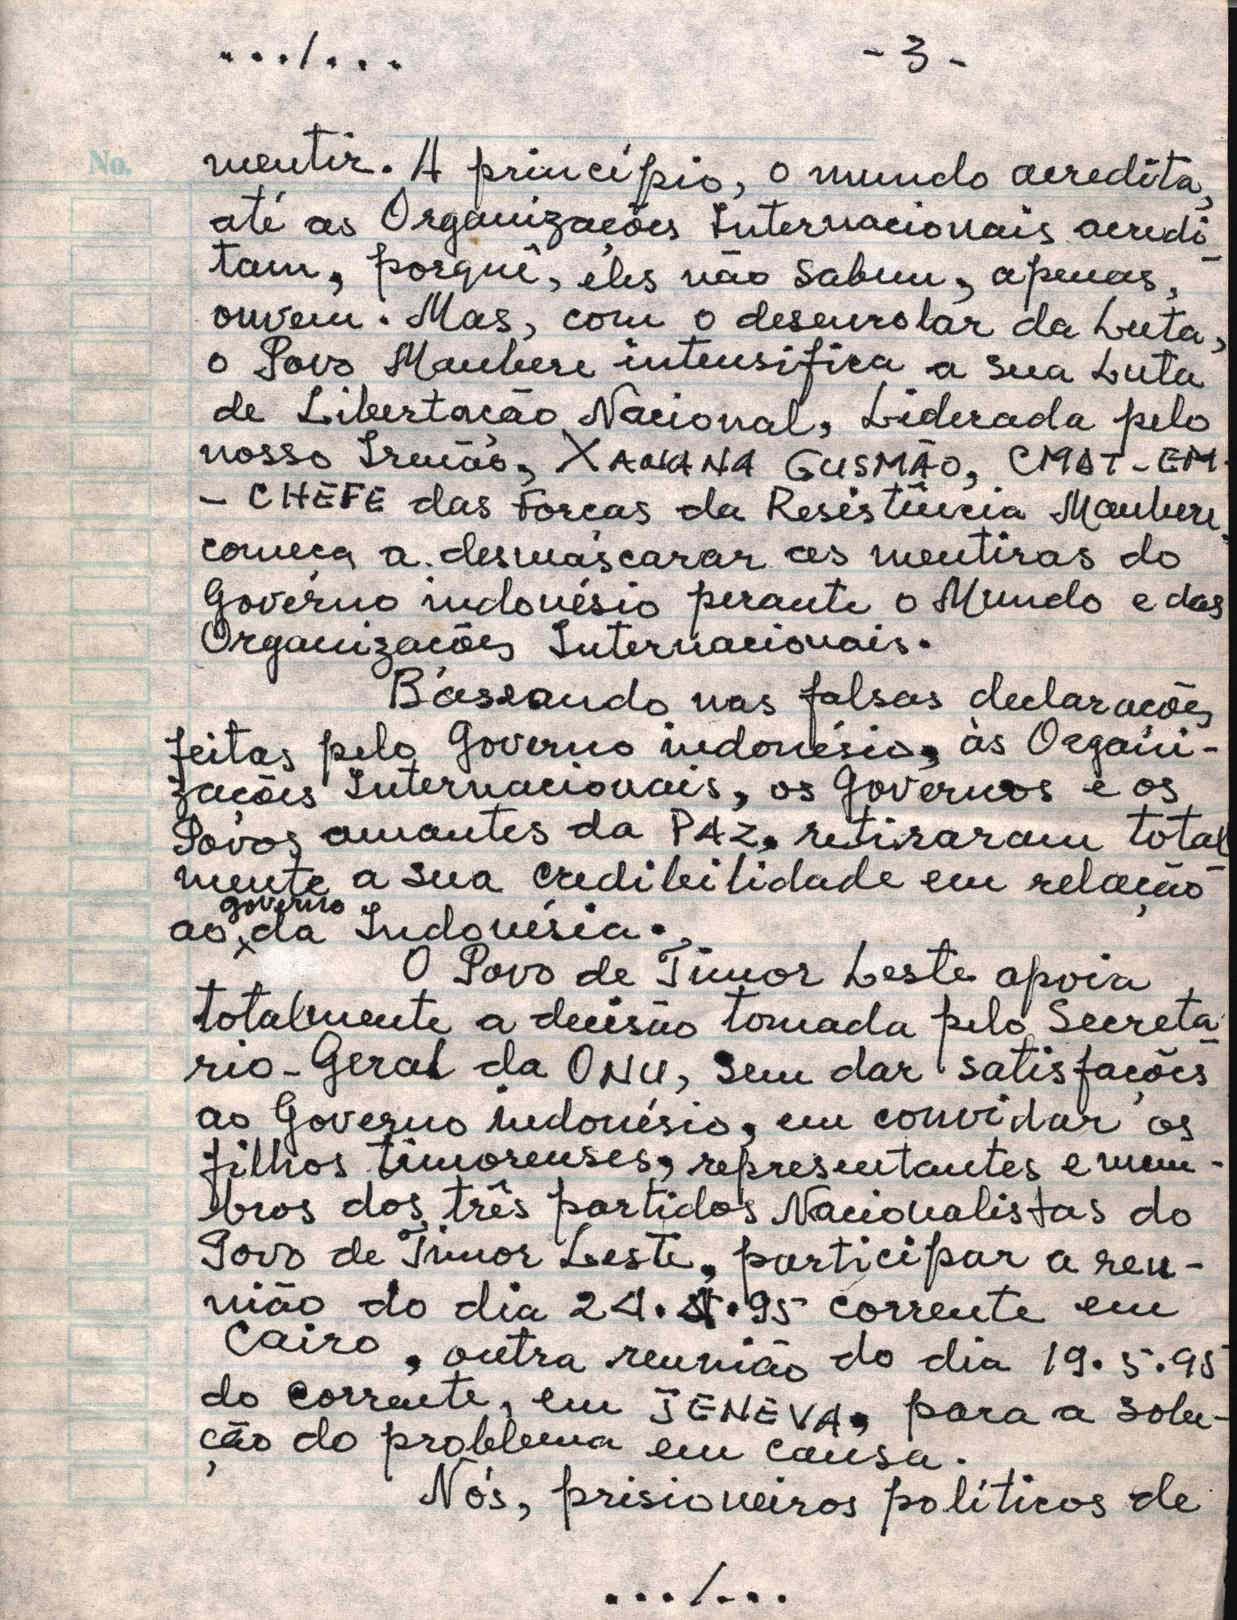 .../... - 3 -
No.
mentir. A princípio, o mundo acredita,
até as Organizações Internacionais acredi-
tam, porquê, êles não sabem, apenas,
ouvem. Mas, com o desenrolar da Luta,
o Povo Maubere intensifica a sua Luta
de Libertação Nacional, Liderada pelo
nosso Irmão, XANANA GUSMÃO, CMDT-EM-
- CHEFE das Forças da Resistência Maubere,
começa a desmáscarar as mentiras do
Govérno indonésio perante o Mundo e das
Organizações Internacionais.
Bássando nas falsas declarações
feitas pelo Governo indonésio, às Organi-
zações Internacionais, os Governos e os
Póvos amantes da PAZ, retiraram total
mente a sua credibilidade em relação
governo
ao x da Indonésia.
O Povo de Timor Leste apoia
totalmente a decisão tomada pelo Secretá
rio-Geral da ONU, sem dar satisfações
ao Governo indonésio, em convidar os
filhos timorenses, representantes e mem-
bros dos três partidos Nacionalistas do
Povo de Timor Leste, participar a reu-
nião do dia 24.4.95 corrente em
Cairo, outra reunião do dia 19.5.95
do corrente, em JENEVA, para a solu-
ção do problema em causa.
Nós, prisioneiros políticos de
.../...